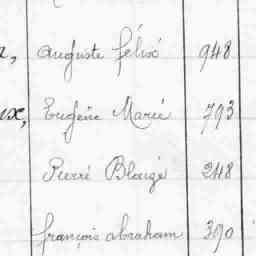 Auguste Félix 948
Eugène Marie 793
Pierre Blaize 248
François Abraham 390